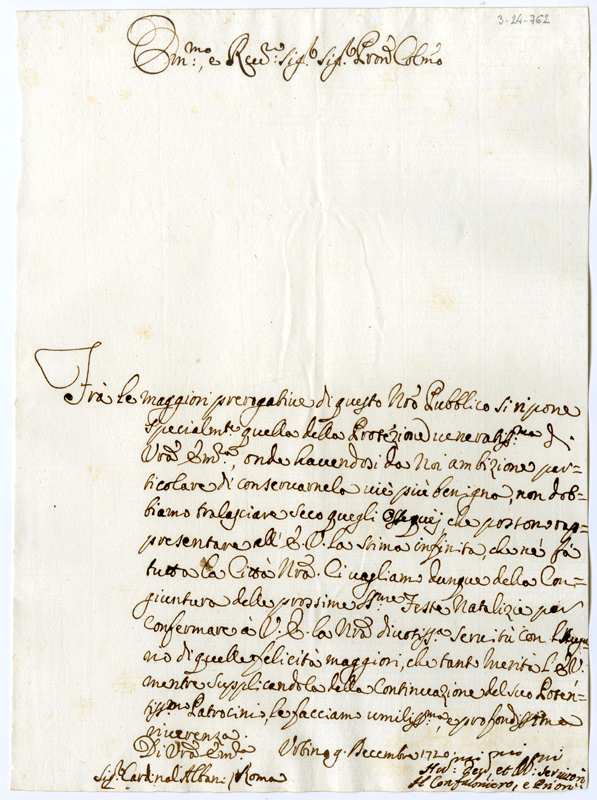 3-24-762
Em:mo, e Rev:mo Sig:r Sig:r Pron Colmo
Frà le maggiori prerogative di questo Nro Pubblico si ripone
specialmte quella della Protezione veneratissma di
Vra Emza, onde havendosi da Noi ambizione par-
ticolare di conservarnela viè più benigna, non dob-
biamo tralasciare seco quegli ossequij che postono rap-
presentare all' E.V. la stima infinita, che nè fà
tutta la Città Nra. Ci vagliamo dunque della Con-
giuntura delle prossime Ssme Feste Natalizie per
confermare à V.E. la Nra divotissa servitù con l'Augu-
rio di quelle felicità maggiori, che tanto merita l'E.V.
mentre supplicandola della Continuazione del suo Poten-
tissmo Patrocinio, le facciamo umilissma, e profondissima
riverenza.
Di Vra Emza Urbino 9. Decembre 1720
Sigr Cardinal Albani / Roma
Il Confaloniero, e Priori